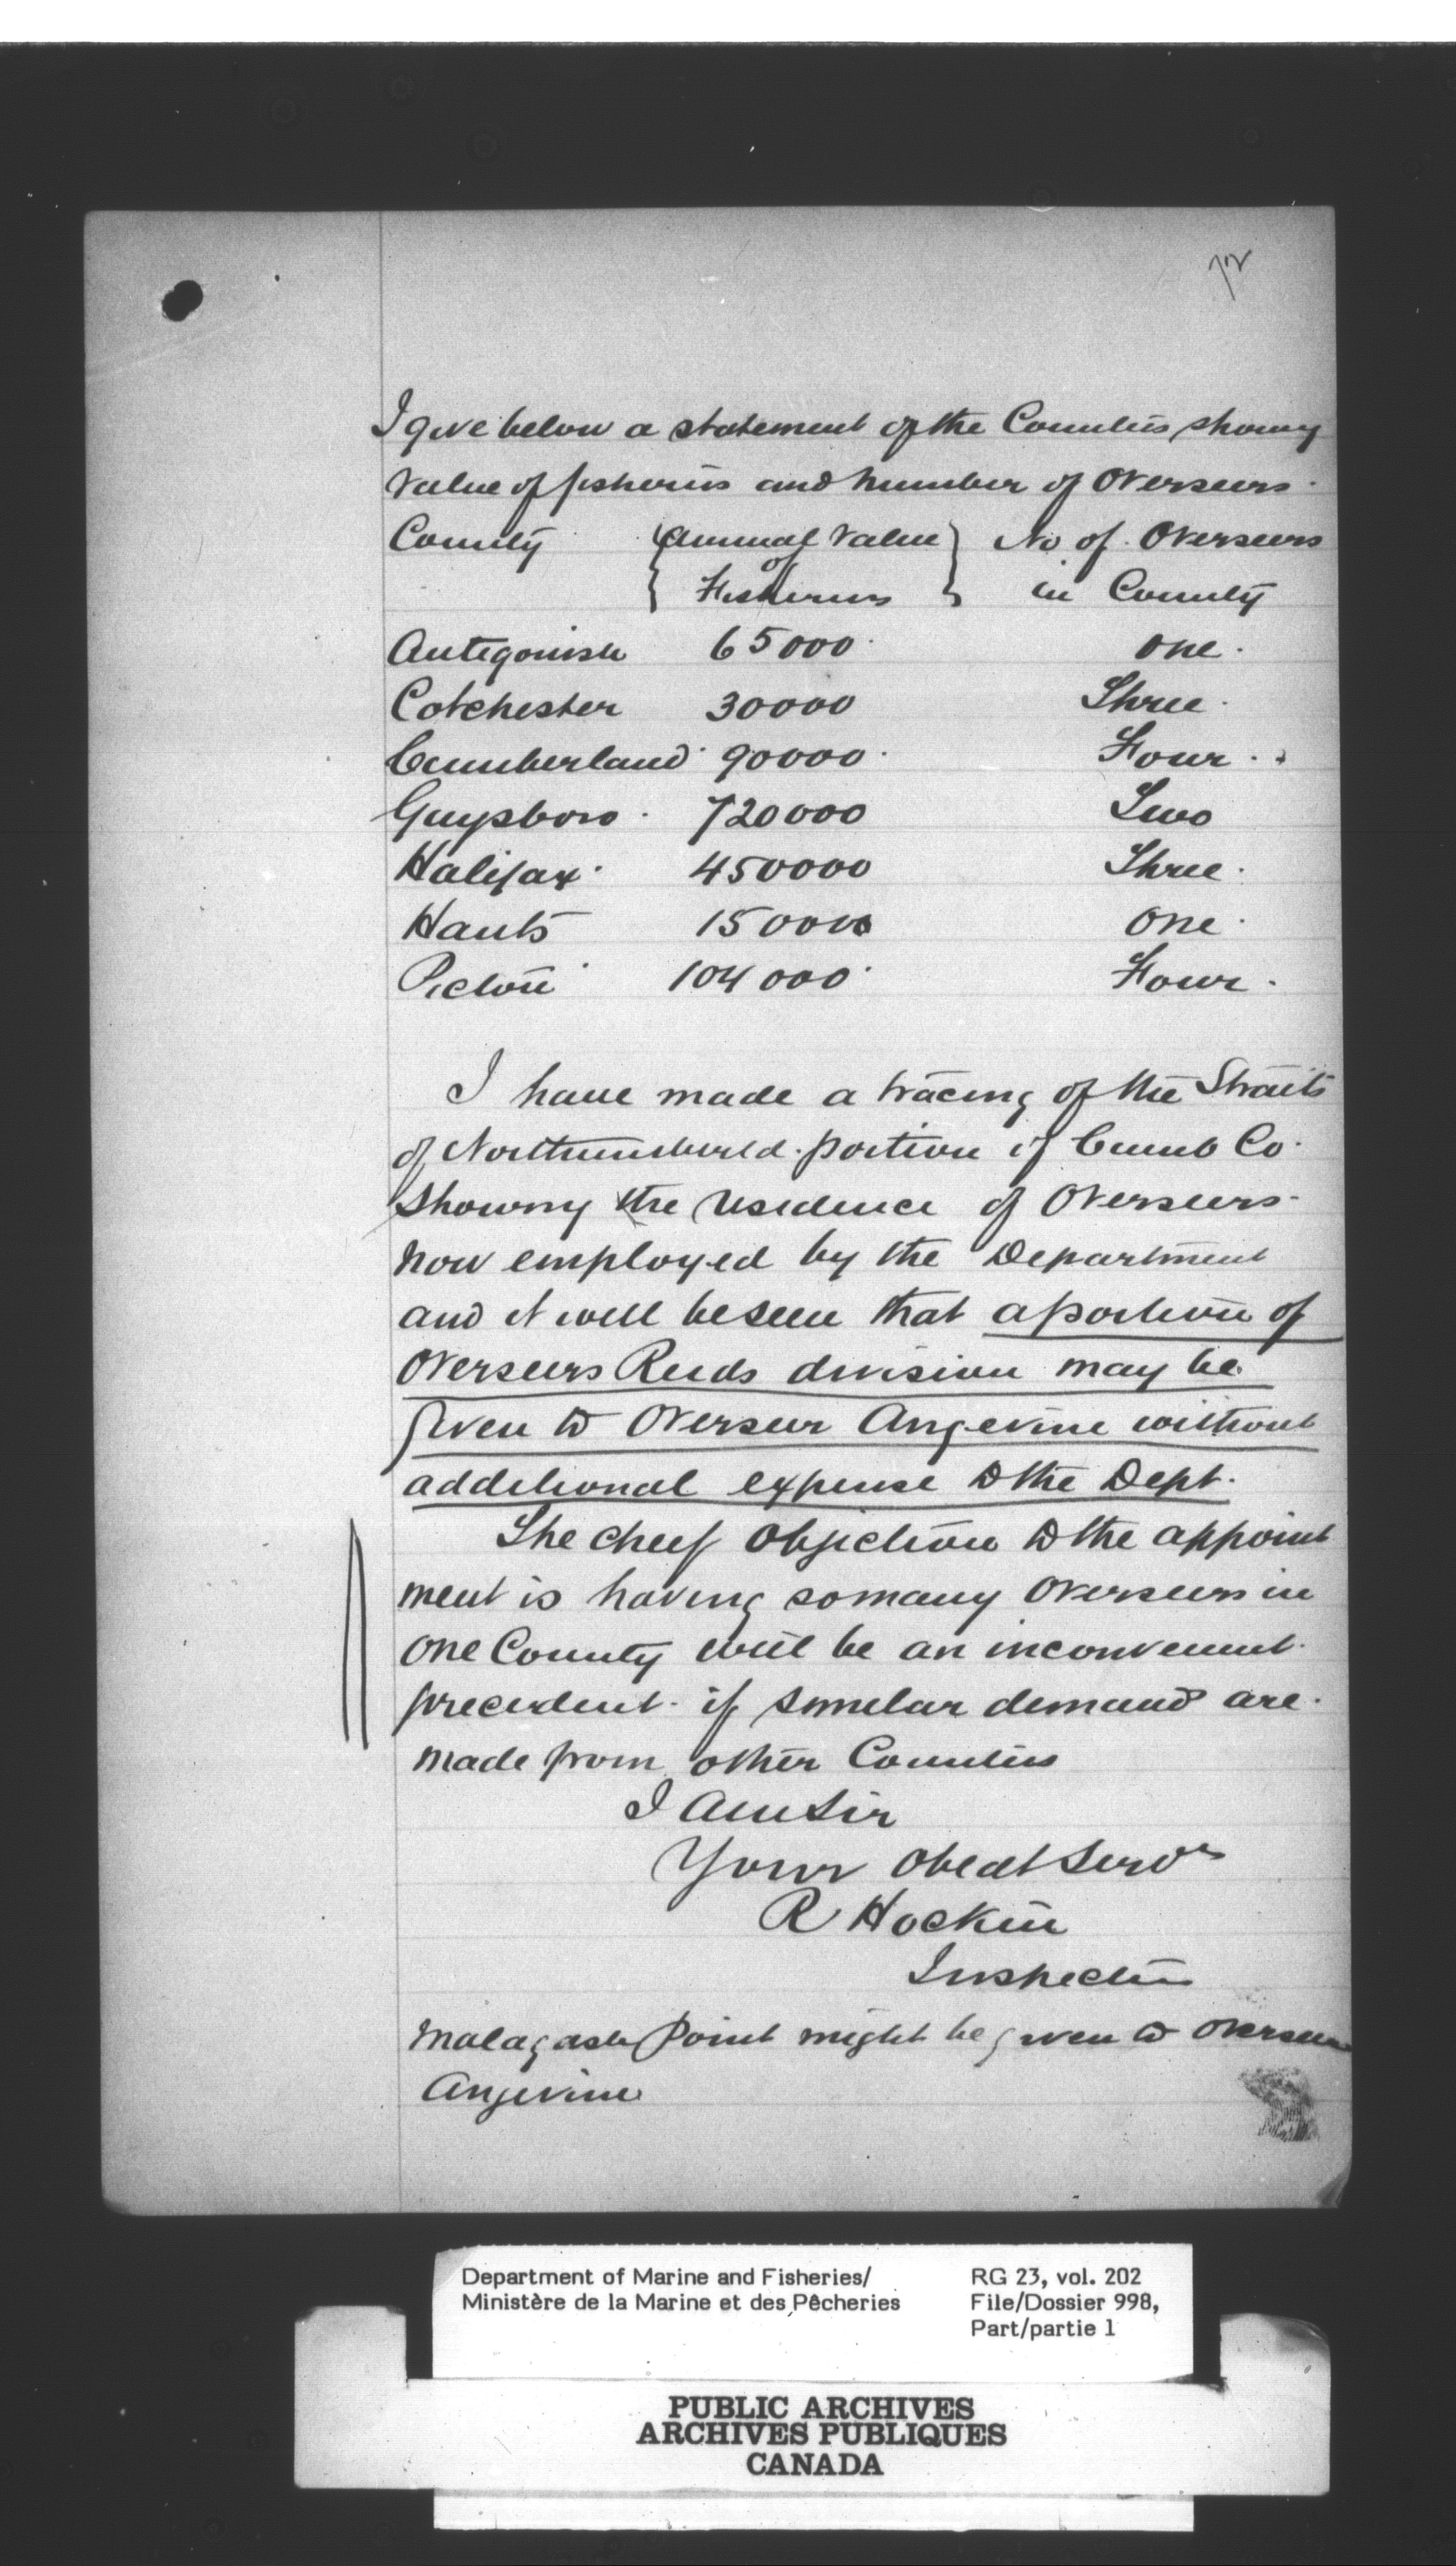 72
I give below a statement of the Counties showing
value of fisheries and number of Overseers.
County { Annual value } No of Overseers
of
{ Fisheries } in County
Antigonish 65000 One.
Colchester 30000 Three.
Cumberland 90000. Four.
Guysboro. 720000 Two
Halifax. 450000 Three.
Hants 15000 One.
Pictou 104000. Four.
I have made a tracing of the Straits
of Northumberld. portion of Cumb Co.
showing the residence of Overseers
now employed by the Department
and it will be seen that a portion of
Overseers Reids division may be
given to Overseer Angevine without
additional expense to the Dept.
The chief objection to the appoint
ment is having so many Overseers in
one County will be an inconvenient
precedent. if similar demand are
made from other Counties
I am Sir
Your obedt Servt
R Hockin
Inspector
Malagash Point might be given to Overseer
Angevine
Department of Marine and Fisheries/ RG 23, vol. 202
Ministère de la Marine et des Pêcheries File/Dossier 998,
Part/partie 1
PUBLIC ARCHIVES
ARCHIVES PUBLIQUES
CANADA